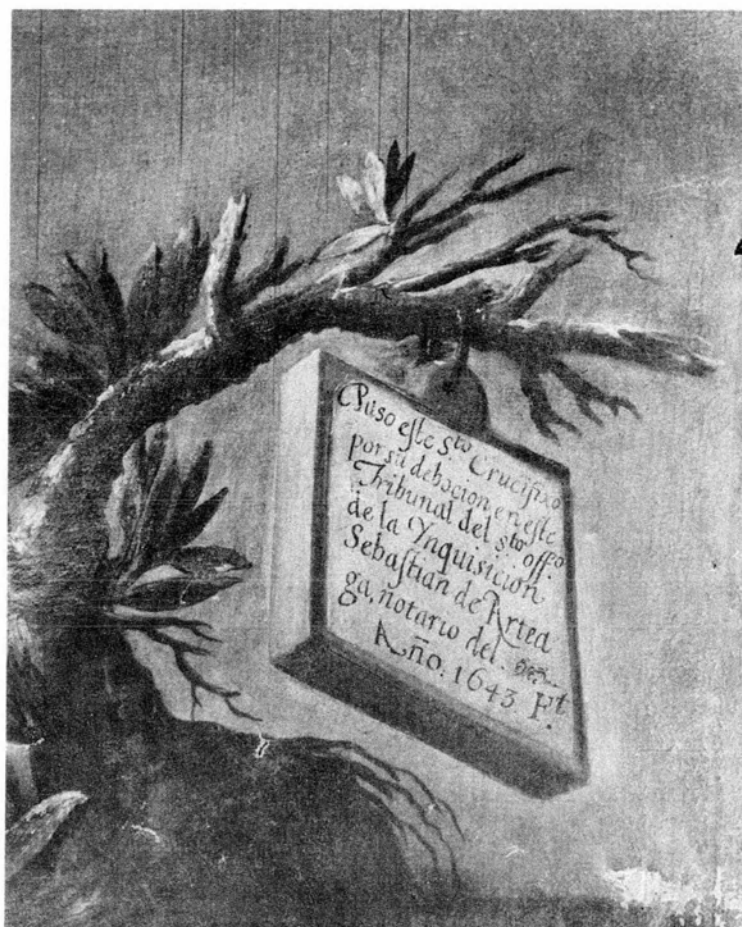 Puso este S.to Crucifixo
por su debocion en este
Tribunal del S.to off.o
de la Ynquisicion
Sebastian de Artea
ga, notario del.
Año. 1643. F.t